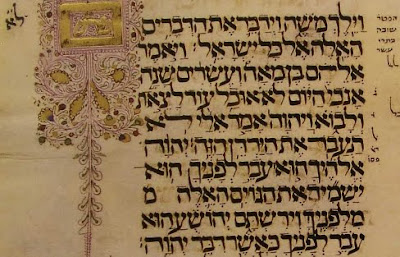 הפטר
שובה
בתרי
עשר
וילך משה וידבר את הדברים
האלה אל כל ישראל ויאמר
אלהם בן מאה ועשרים שנה
אנכי היום לא אוכל עוד לצאת
ולבוא ויהוה אמר אלי לא
תעבר את הירדן הזה יהוה
אלהיך הוא עבר לפניך הוא
ישמיד את הגוים האלה מ
מלפניך וירשתם יהושע הוא
עבר לפניך כאשר דבר יהוה